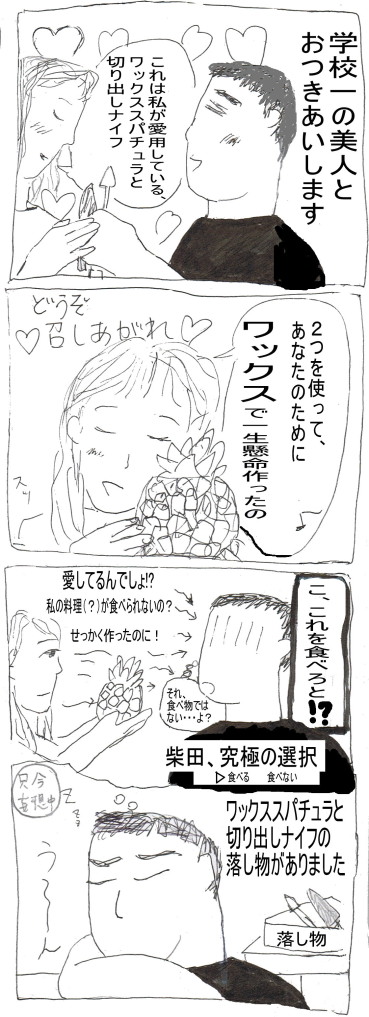 学校一の美人と
おつきあいします
これは私が愛用している、
ワックススパチュラと
切り出しナイフ
2つを使って、
あなたのために
ワックスで一生懸命作ったの
どうぞ
♡召しあがれ♡
スッ
こ、これを食べろと!?
愛してるんでしょ!?
私の料理(?)が食べられないの?
せっかく作ったのに!
それ、
食べ物では
ない・・・よ?
柴田、究極の選択
▷食べる 食べない
ワックススパチュラと
切り出しナイフの
落し物がありました
只今
妄想中
z
z
z
う~~ん
落し物